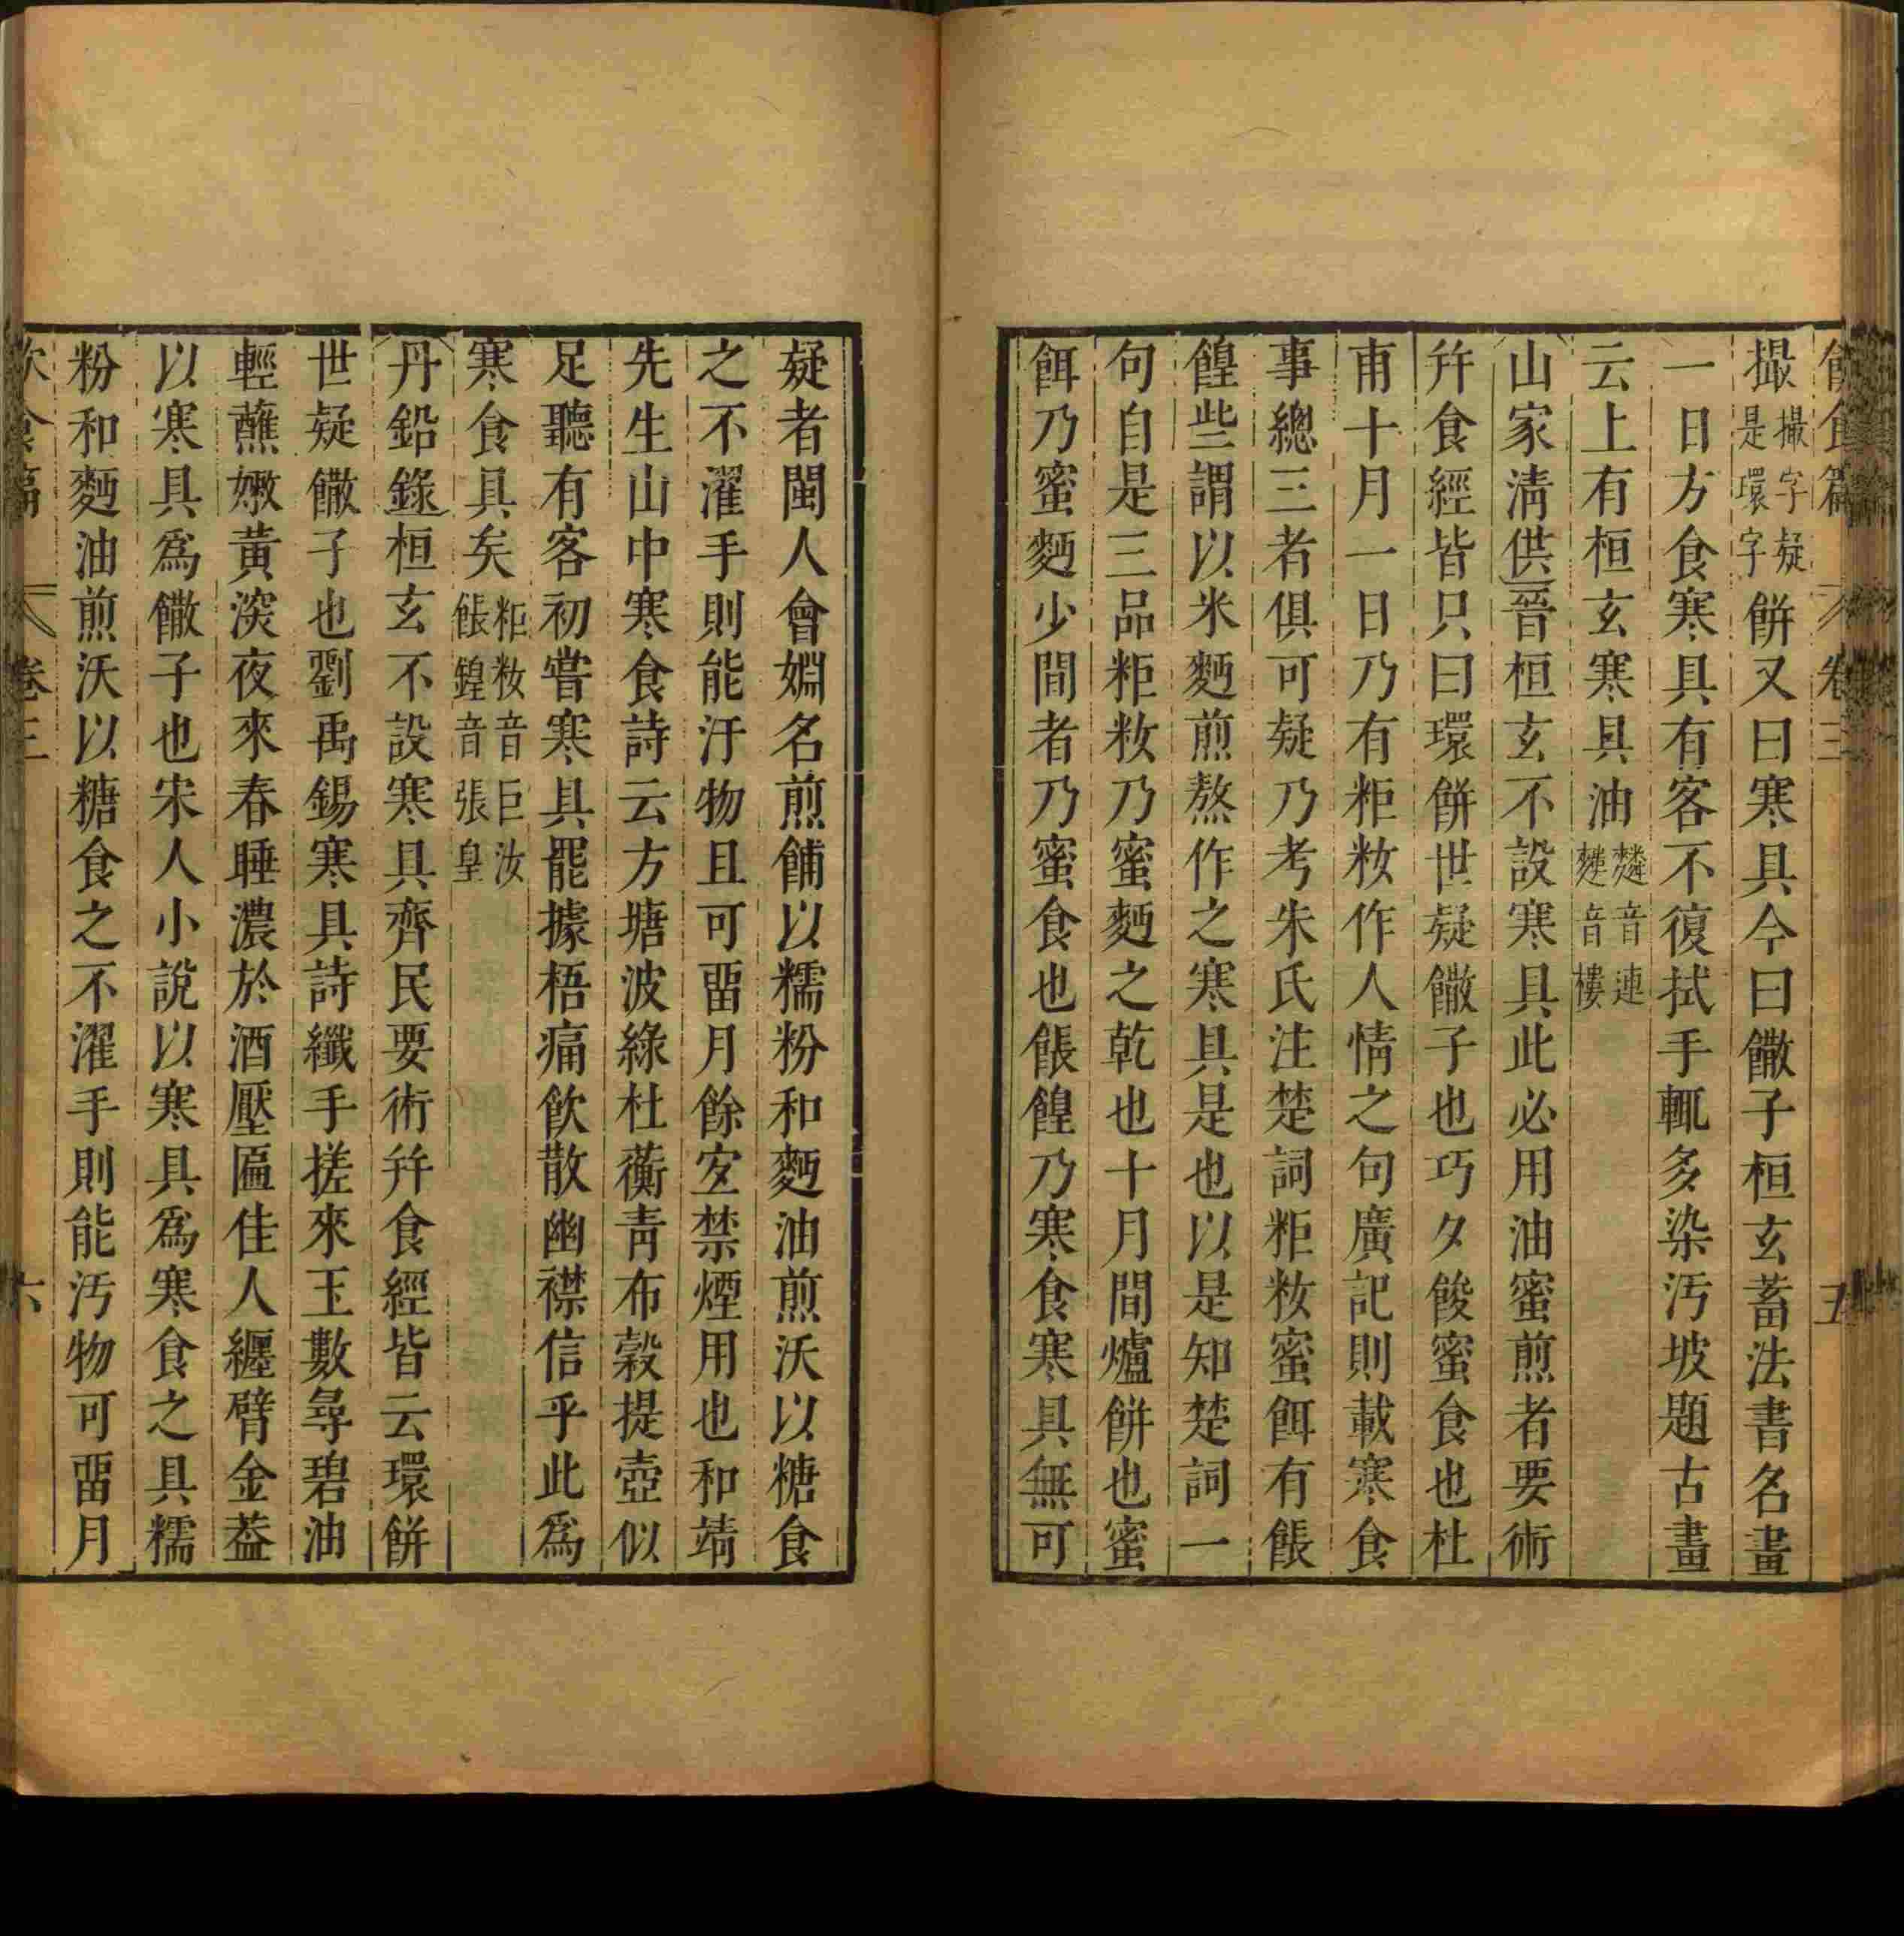 飲食篇 卷三 五
撮撮字疑是環字餅又曰寒具今曰饊子桓玄蓄法書名畫
一日方食寒具有客不復拭手輒多染汚坡題古畫
云上有桓玄寒具油䴶音連䱾音樓
山家清供晉桓玄不設寒具此必用油蜜煎者要術
幷食經皆只曰環餅世疑饊子也巧夕餕蜜食也杜
甫十月一日乃有粔籹作人情之句廣記則載寒食
事總三者俱可疑乃考朱氏注楚詞粔籹蜜餌有餦
餭些謂以米麪煎熬作之寒具是也以是知楚詞一
句自是三品粔籹乃蜜麪之乾也十月間爐餅也蜜
餌乃蜜麪少間者乃蜜食也餦餭乃寒食寒具無可
疑者閩人會婣名煎餔以糯粉和麪油煎沃以糖食
之不濯手則能汙物且可畱月餘宐禁煙用也和靖
先生山中寒食詩云方塘波綠杜蘅靑布穀提壺似
足聽有客初嘗寒具罷據梧痛飮散幽襟信乎此爲
寒食具矣粔籹音巨汝餦餭音張皇
丹鉛錄桓玄不設寒具齊民要術幷食經皆云環餅
世疑饊子也劉禹錫寒具詩纖手搓來玉數尋碧油
輕蘸嫩黃深夜來春睡濃於酒壓匾佳人纏臂金葢
以寒具爲饊子也宋人小說以寒具爲寒食之具糯
粉和麪油煎沃以糖食之不濯手則能汚物可畱月
飲食篇 卷三 六